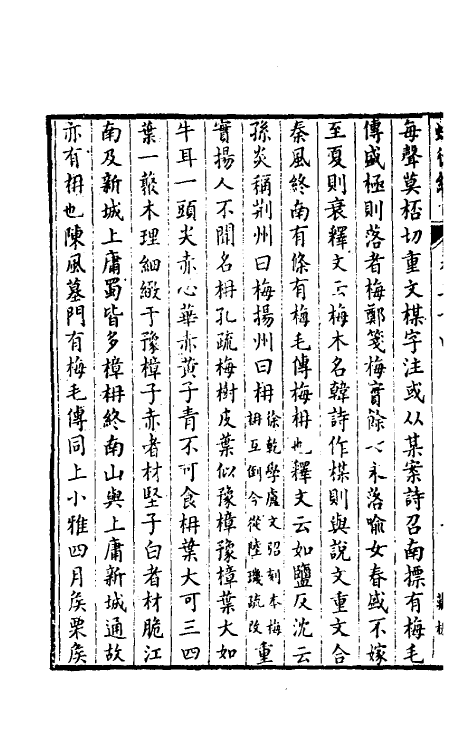 每聲莫栝切重文楳字注或从某案詩召南摽有梅毛
傳盛極則落者梅鄭箋梅實餘七未落喻女春盛不嫁
至夏則衰釋文云梅木名韓詩作楳則與說文重文合
秦風終南有條有梅毛傳梅枏也釋文云如鹽反沈云
孫炎稱荆州曰梅揚州曰枏徐乾學盧文弨刻本梅枏互倒今從陸璣疏改重
實揚人不聞名枏孔疏梅樹皮葉似豫樟豫樟葉大如
牛耳一頭尖赤心華赤黃子青不可食枏葉大可三四
葉一藂木理細緻于豫樟子赤者材堅子白者材脆江
南及新城上庸蜀皆多樟枏終南山與上庸新城通故
亦有枏也陳風墓門有梅毛傳同上小雅四月矦栗矦